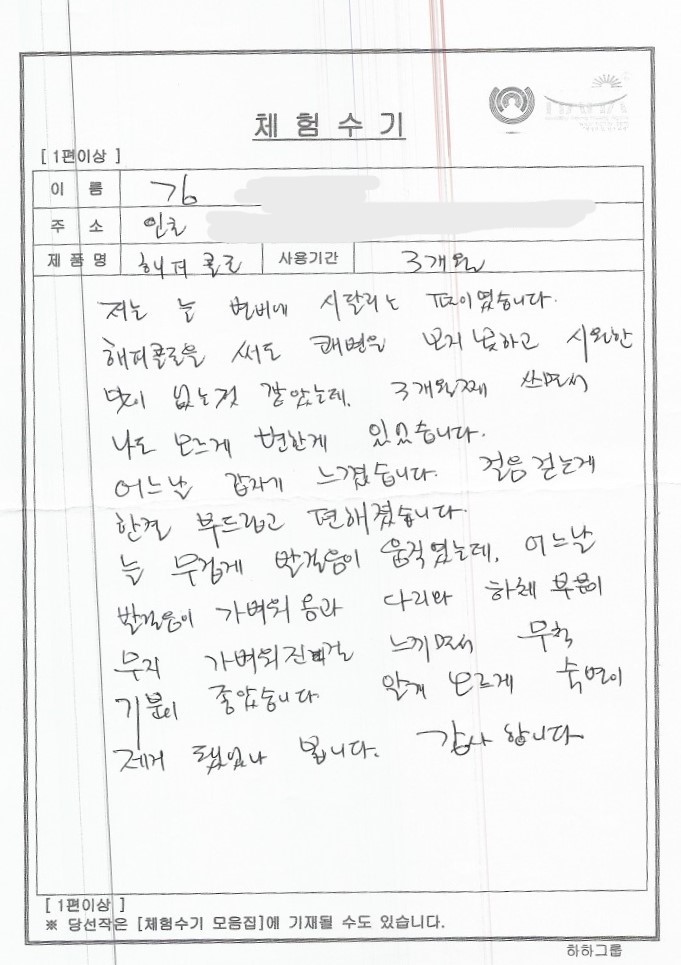 체 험 수 기
[ 1편이상 ]
이 름 김
주 소 인천
제 품 명 해피콜론 사용기간 3개월
저는 늘 변비에 시달리는 편이였습니다.
해피콜론을 써도 쾌변을 보지 못하고 시원한
맛이 없는것 같았는데, 3개월째 쓰면서
나도 모르게 변한게 있었습니다.
어느날 갑자기 느꼈습니다. 걸음 걷는게
한결 부드럽고 편해졌습니다.
늘 무겁게 발걸음이 움직였는데, 어느날
발걸음이 가벼워 다리와 하체 부분이
무지 가벼워진걸 느끼면서 무척
기분이 좋았습니다. 알게 모르게 숙변이
제거 됐었나 봅니다. 감사 합니다
[ 1편이상 ]
※ 당선작은 [체험수기 모음집]에 기재될 수도 있습니다.
하하그룹